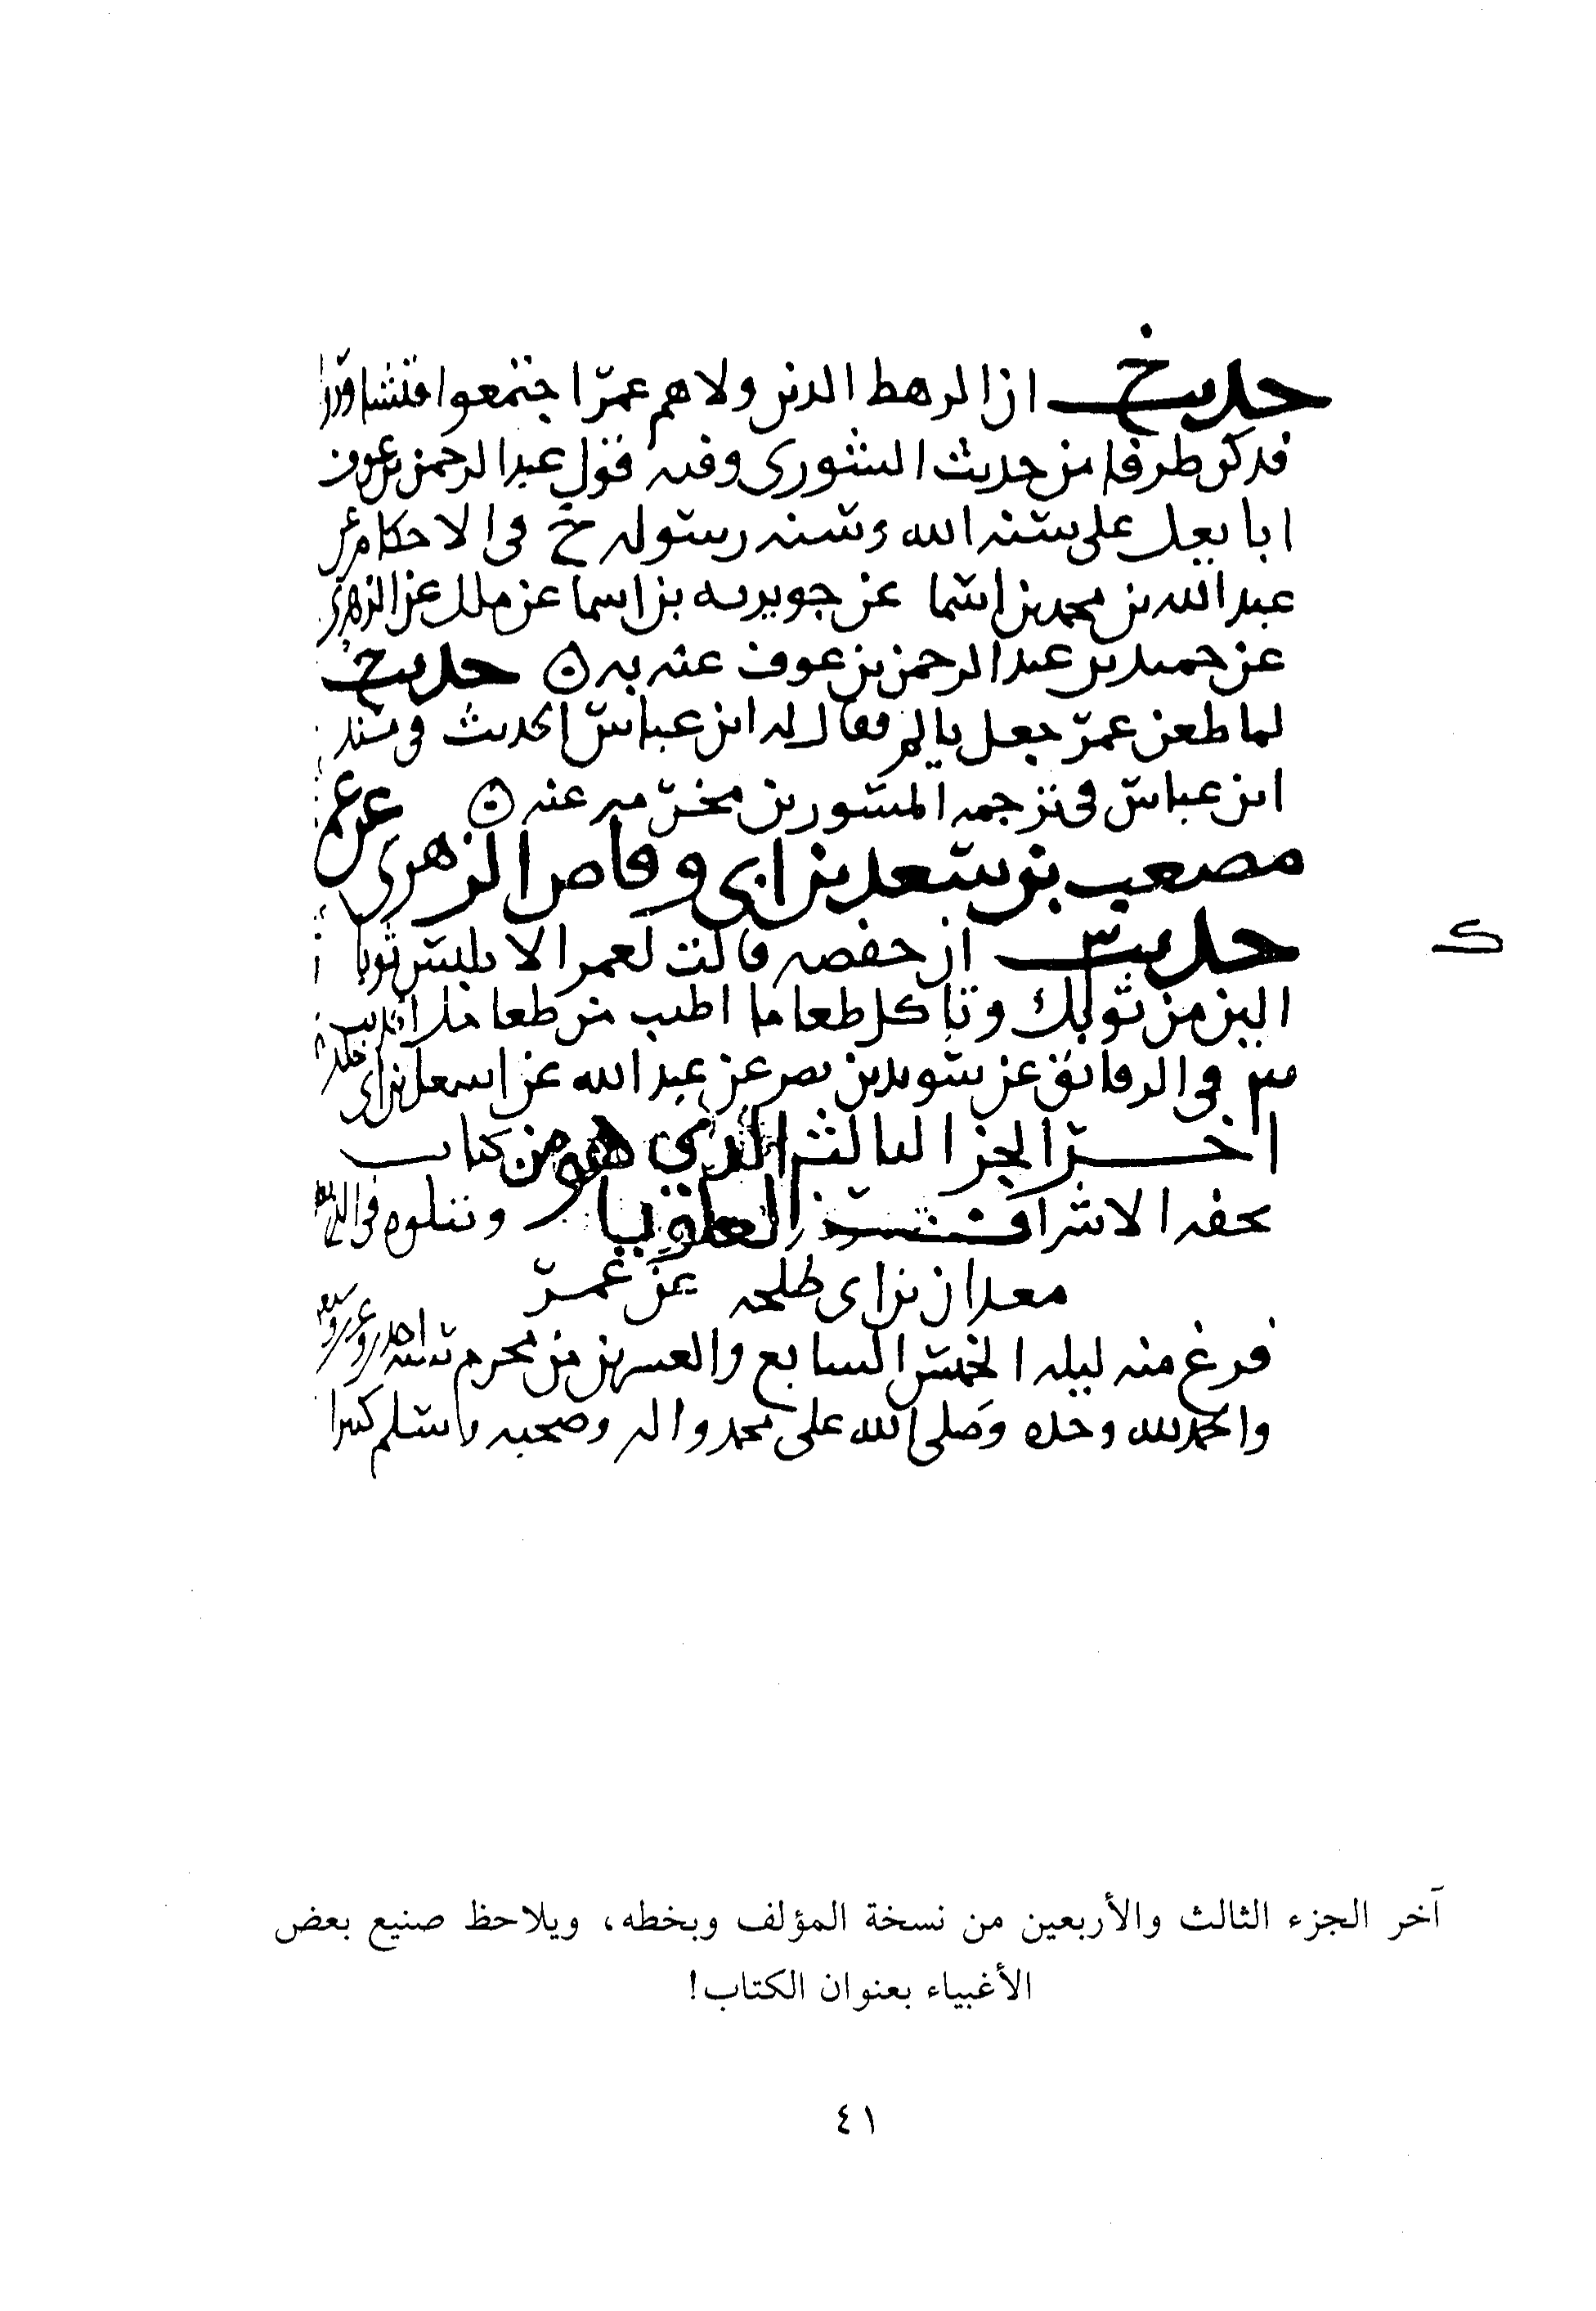 خ
حديث ان الرهط الذين ولاهم عمر اجتمعوا فتشاوروا
فذكر طرفا من حديث الشورى وفيه قول عبد الرحمن بن عوف
ابايعك على سنه الله وسنه رسوله خ في الاحكام عن
عبد الله بن محمد بن اسما عن جويريه بن اسما عن ملك عن الزهري
عن حميد بن عبد الرحمن بن عوف عنه به ۞ حديث خ
لما طعن عمر جعل يالم فقال له ابن عباس الحديث في مسند
ابن عباس في ترجمه المسور بن مخرمه عنه ۞
مصعب بن سعد بن ابي وقاص الزهري عن عمر
ك حديث س ان حفصه قالت لعمر الا تلبس ثوبا
الين من ثوبك وتاكل طعاما اطيب من طعامك هذا
س في الرقائق عن سويد بن نصر عن عبد الله عن اسمعيل بن ابي خالد
اخر الجز الثالث الذي هو من كتاب
تحفه الاشراف ونتلوه في الذي
معدان بن ابي طلحه عن عمر
فرغ منه ليله الخميس السابع والعشرين من محرم سنه
والحمد لله وحده وصلى الله على محمد واله وصحبه وسلم كثيرا
آخر الجزء الثالث والأربعين من نسخة المؤلف وبخطه، ويلاحظ صنيع بعض
الأغبياء بعنوان الكتاب!
٤١